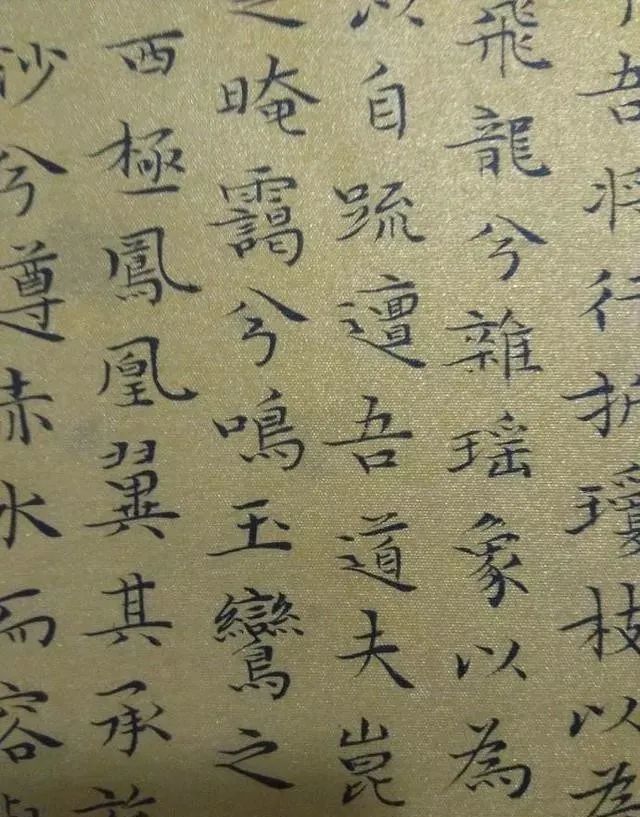 吾将行折瓊枝以為
飛龍兮雜瑶象以為
以自疏邅吾道夫崑
之晻靄兮鳴玉鸞之
西極鳳凰翼其承
沙兮遵赤水而容